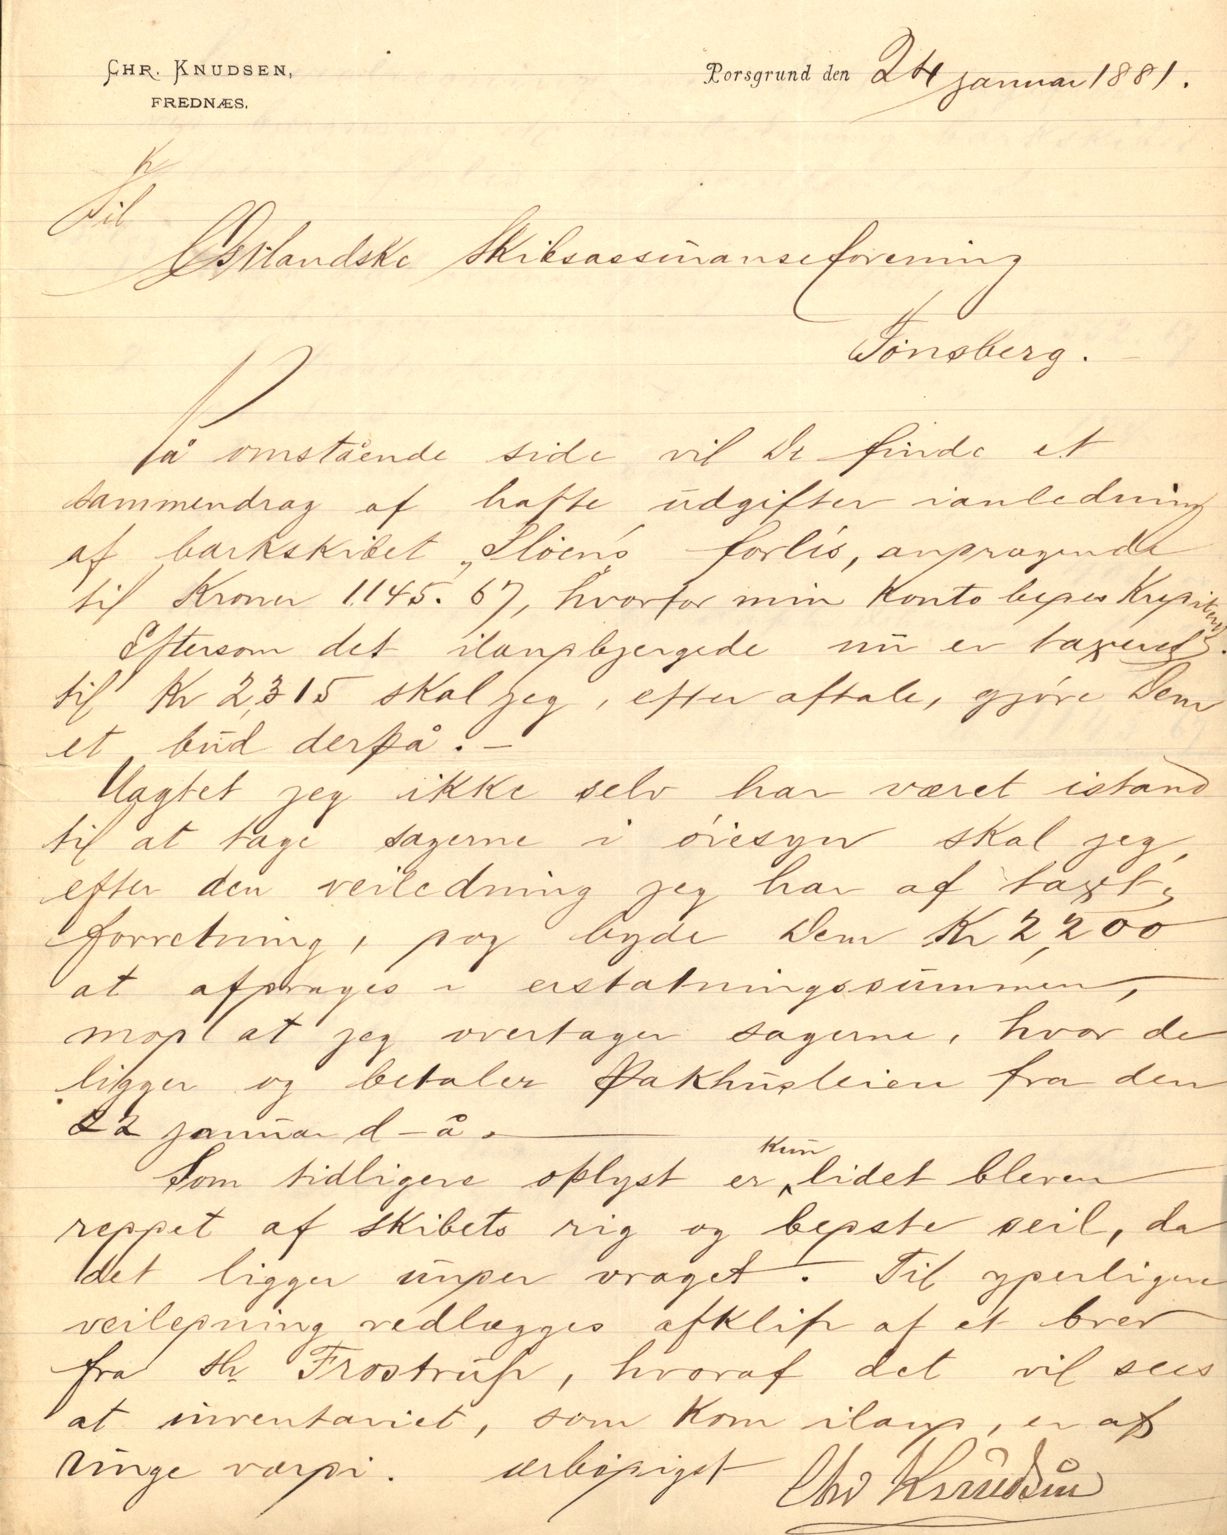 Chr. Knudsen,
Frednæs.
Porsgrund den 24 januar 1881.
Til
Østlandske Skibsassuranseforening
Tönsberg.
På omstående side vil De finde et
sammendrag af hafte udgifter ianledning
af barkskibet "Sloën's forlis, andragende
til Kroner 1145.67, hvorfor min Konto bedes Krediteret.
Eftersom det ilandbjergede nu er taxeret
til Kr 2,315 skal jeg, efter aftale, gjöre Dem
et bud derpå. —
Uagtet jeg ikke selv har været istand
til at tage sagerne i öiesyn skal jeg,
efter den veiledning jeg har af taxt-
forretning, dog byde Dem Kr 2,200
at afdrages i erstatningssummen,
mod at jeg overtager sagerne, hvor de
ligger og betaler Pakhusleien fra den
22 januar d-å. —
Som tidligere oplyst er kun lidet bleven
reddet af skibets rig og bedste seil, da
det ligger under vraget. Til yderligere
veiledning vedlægges afklip af et brev
fra Hr Frostrup, hvoraf det vil sees
at inventariet, som kom iland, er af
ringe værdi. ærbödigst
Chr Knudsen